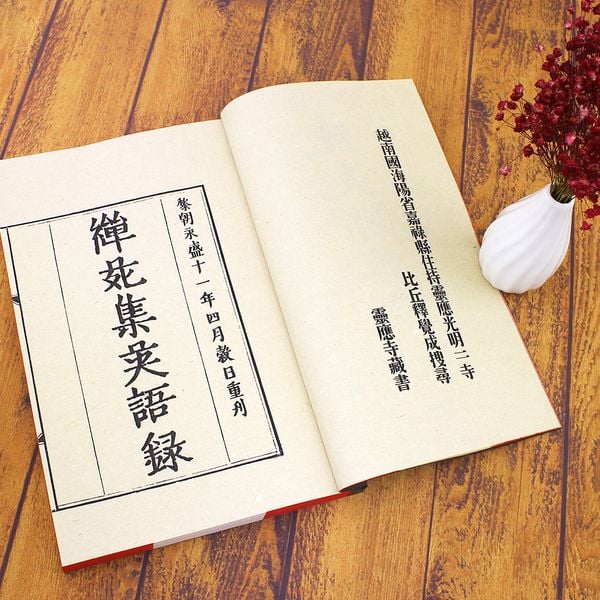 越南國海陽省嘉祿縣住持靈應光明二寺
比丘釋覺成搜尋
靈應寺藏書
黎朝永盛十一年四月穀日重刊
禪苑集英語録